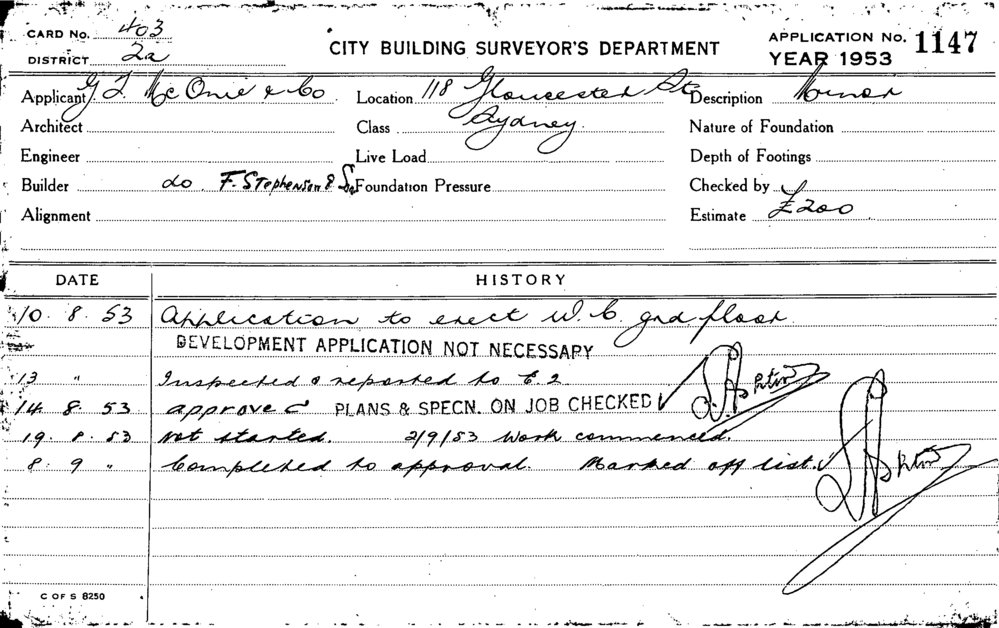 CARD No. 403
DISTRICT 2a
CITY BUILDING SURVEYOR'S DEPARTMENT
APPLICATION No. 1147
YEAR 1953
Applicant G. T. McOnie & Co Location 118 Gloucester St Description Minor
Architect Class Sydney Nature of Foundation
Engineer Live Load Depth of Footings
Builder do F. Stephenson & Foundation Pressure Checked by
Alignment Estimate £200
DATE HISTORY
10. 8. 53 Application to erect W. C. grd floor.
DEVELOPMENT APPLICATION NOT NECESSARY
13 " Inspected & reported to E. 2
14. 8. 53 approved PLANS & SPECN. ON JOB CHECKED
19. 8. 53 Not started. 2/9/53 Work commenced.
8. 9 " Completed to approval. Marked off list.
C OF S 8250